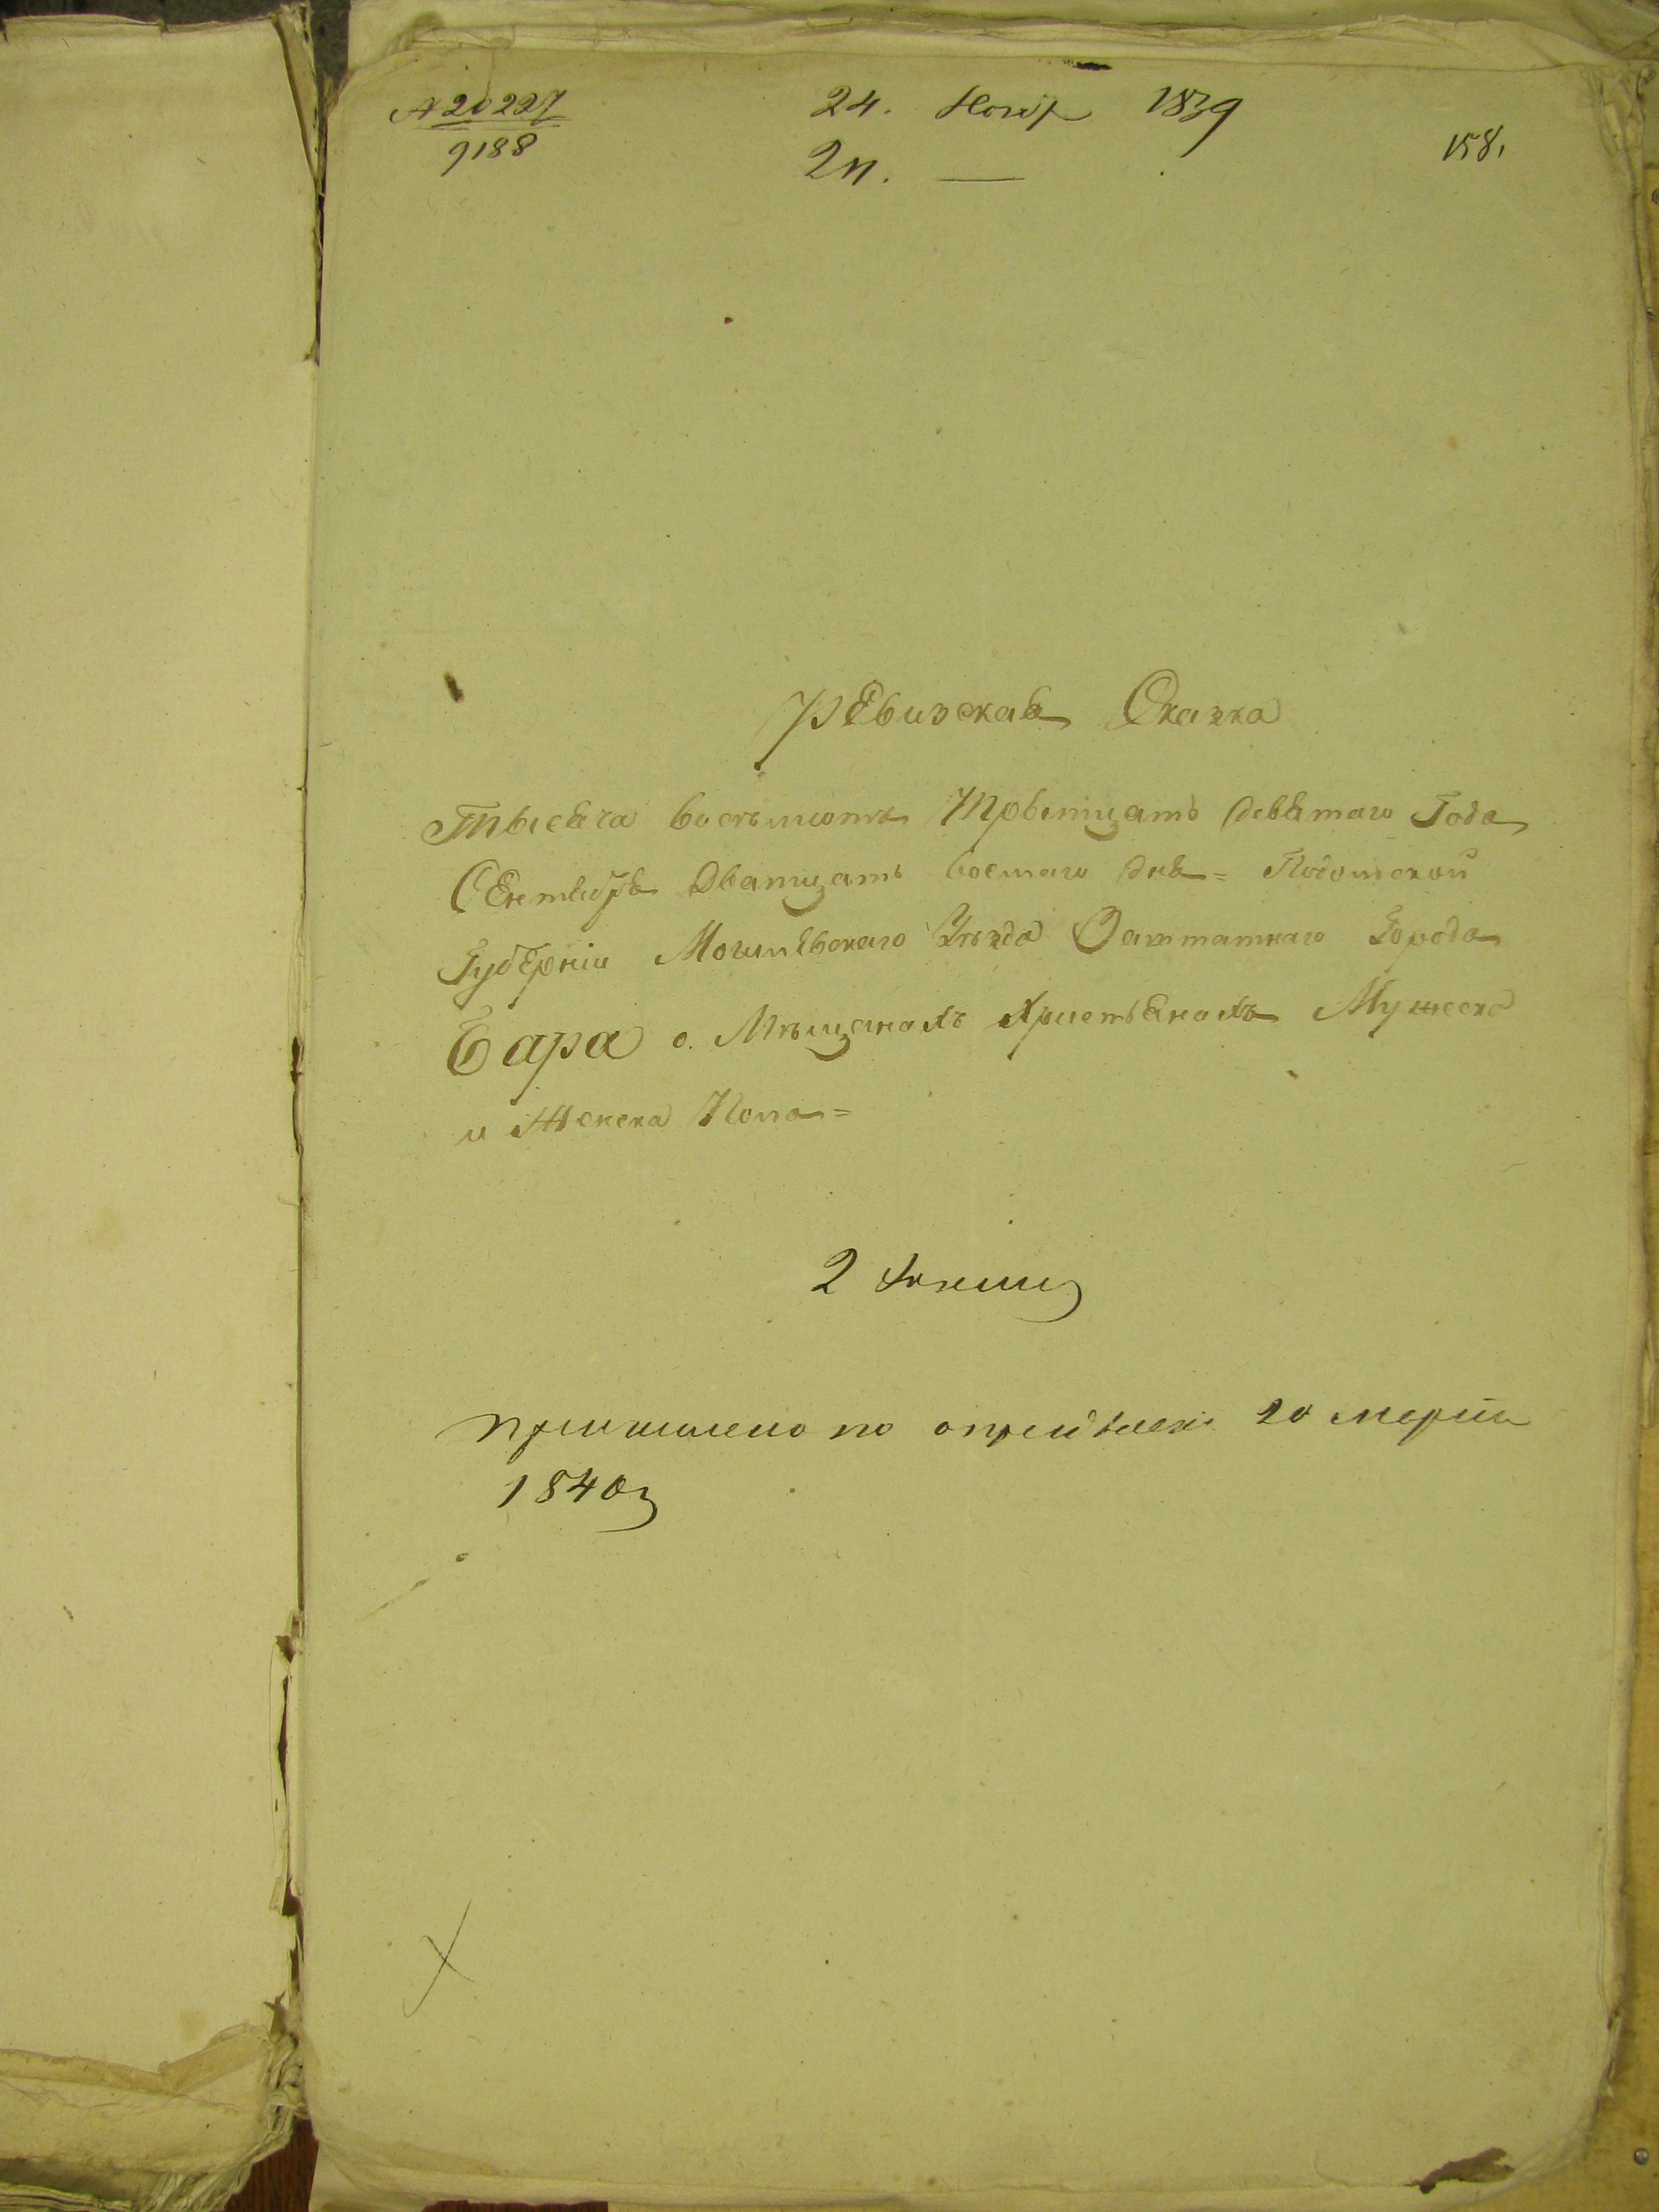 20227
9188
24. Нояб 1839
158.
2 п. —
Ревизская Сказка
Тысяча восемьсотъ Тритцать девятаго Года
Сентября Двадцать восмаго дня = Подольской
Губерніи Могилевскаго Уѣзда Заштатнаго Города
Бара о. Мѣщанахъ Христьянахъ Мужеска
и Женска Пола =
2
по 20 марта
1840